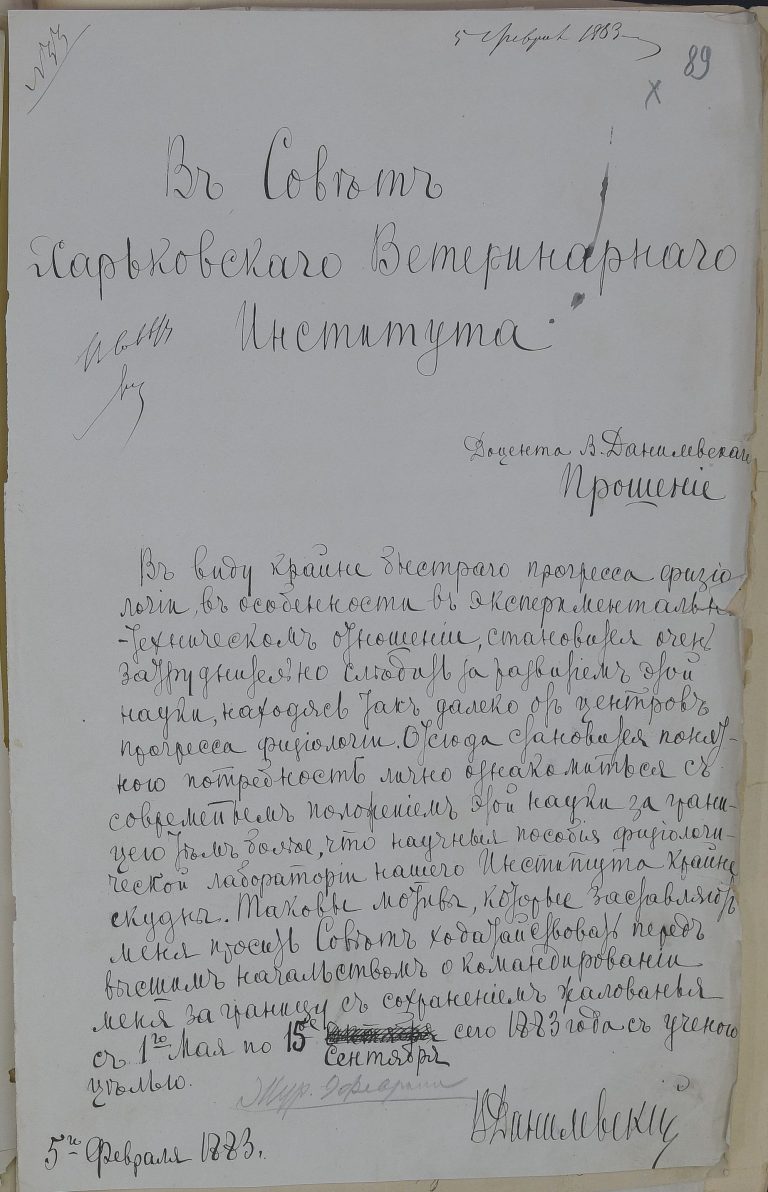 5 Февраля 1883
89
Х
Въ Совѣтъ
Харьковскаго Ветеринарнаго
Института
Доцента В. Данилевскаго
Прошеніе
Въ виду крайне быстраго прогресса физіо
логіи, въ особенности въ экспериментальн
-техническомъ отношеніи, становится очень
затруднительно слѣдить за развитіемъ этой
науки, находясь такъ далеко отъ центровъ
прогресса физіологіи. Отсюда становится понят-
ною потребность лично ознакомиться съ
современнымъ положеніемъ этой науки за грани-
цею тѣмъ болѣе, что научныя пособія физіологи-
ческой лабораторіи нашего Института крайне
скудны. Таковы мотивы, которые заставляютъ
меня просить Совѣтъ ходатайствовать передъ
высшимъ начальствомъ о командированіи
меня за границу съ сохраненіемъ жалованья
съ 1го Мая по 15е сего 1883 года съ ученою
Сентября
цѣлью.
Жур. 9 февраля
5го Февраля 1883.
В Данилевскій